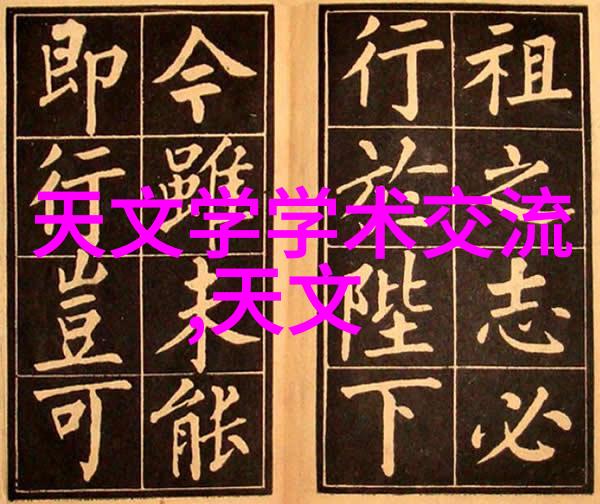 祖之志必
行於陛下
今雖未能
即行豈可
天文学学术交流
,天文